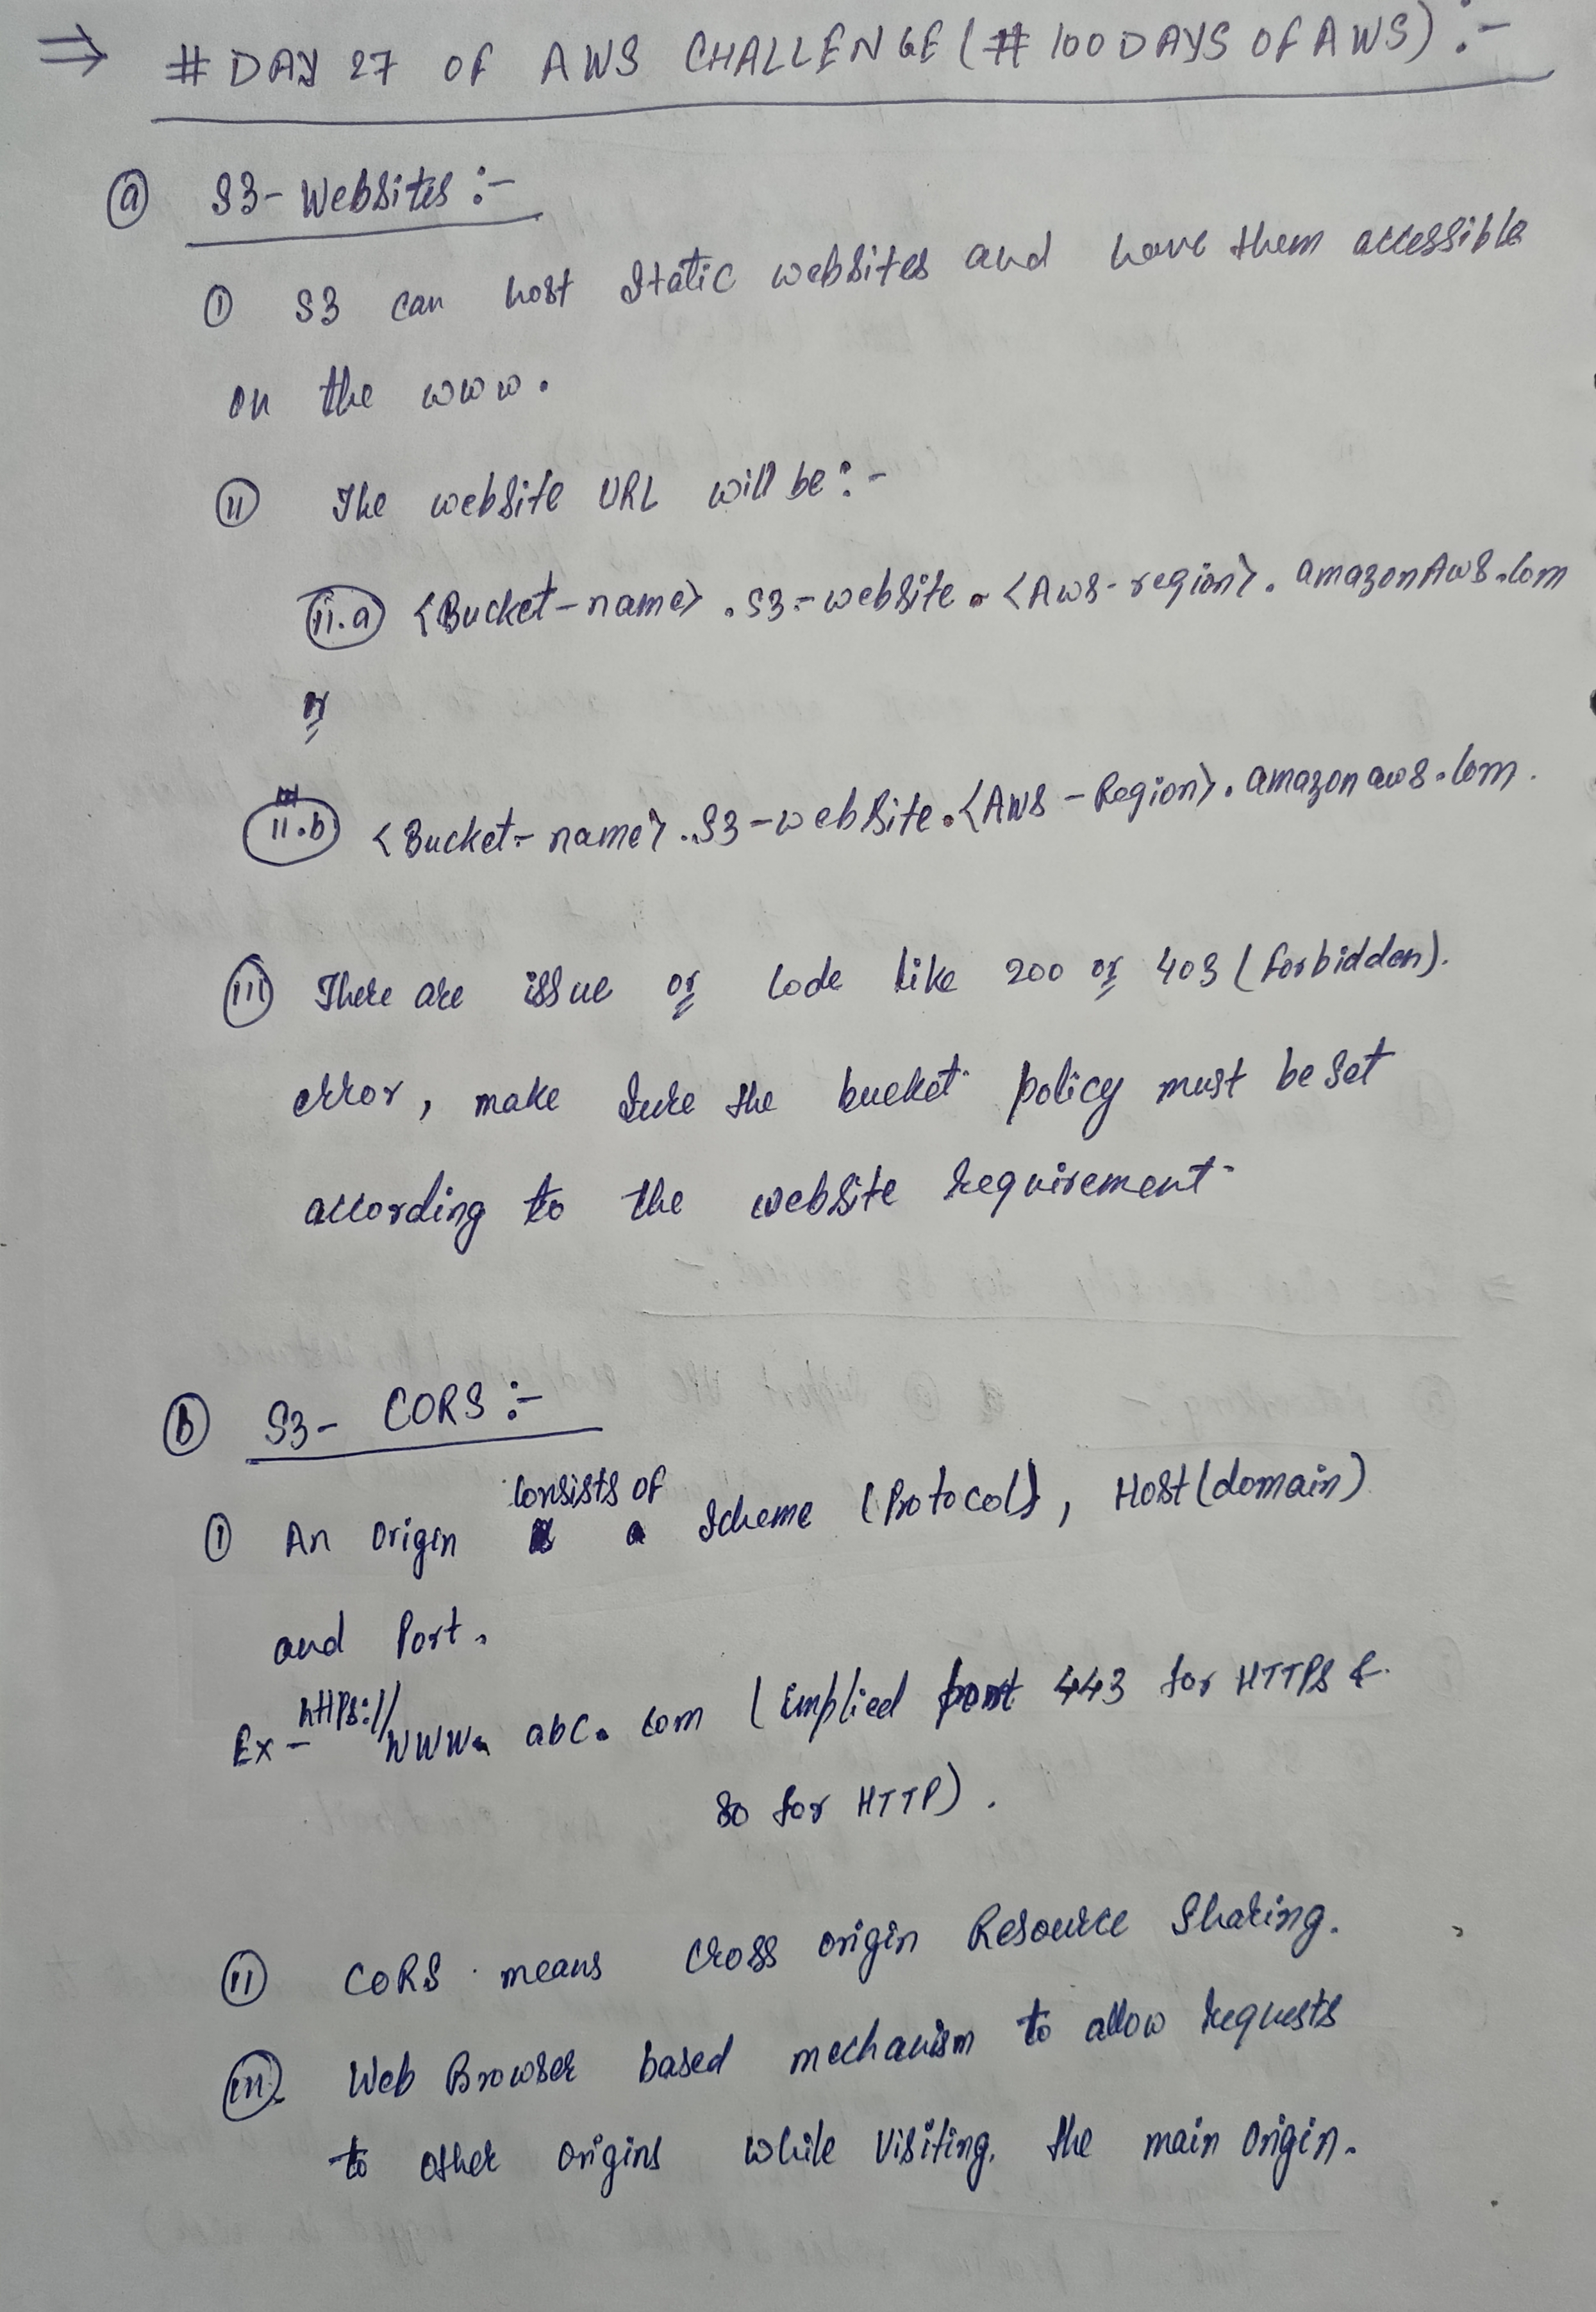 ⇒ # DAY 27 OF AWS CHALLENGE (# 100 DAYS OF AWS) :-
ⓐ S3- Websites :-
Ⓘ S3 can host static websites and have them accessible
on the www.
ⓘⓘ The website URL will be :-
ii.a <Bucket-name>.S3-website-<Aws-region>.amazonAws.com
or
ii.b <Bucket-name>.S3-website.<AWS-Region>.amazonaws.com.
iii There are issue or code like 200 or 403 (forbidden).
error, make sure the bucket policy must be set
according to the website requirement.
ⓑ S3- CORS :-
Ⓘ An origin consists of a Scheme (Protocol), Host (domain)
and Port.
Ex - https://www.abc.com (implied port 443 for HTTPS &
80 for HTTP).
ii CORS means Cross origin Resource Sharing.
iii. Web Browser based mechanism to allow requests
to other origins while visiting. the main origin.